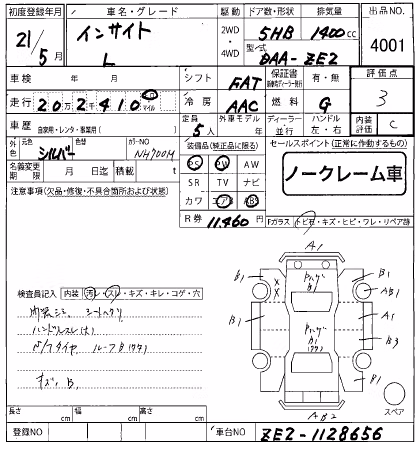 初度登録年月 車名・グレード 駆動 ドア数・形状 排気量 出品NO.
21/5月 インサイト L 2WD・4WD 5HB 1400cc 4001
型式 DAA-ZE2
車検 年 月 シフト FAT 保証書 有・無 評価点 3
走行 202410 マイル 冷房 AAC 燃料 G
車歴 自家用・レンタ・事業用( ) 定員 5人 外車モデル ディーラー・並行 ハンドル 左・右 内装評価 C
外色 元色 シルバー 色替 カラーNO NH700M
装備品(純正品に限る) PS PW AW SR TV ナビ カワ エアB ABS
セールスポイント (正常に作動するもの)
ノークレーム車
名義変更期限 月 日迄 積載 t
注意事項(欠品・修復・不具合箇所および状態)
R券 11,460
Fガラス トビ石・キズ・ヒビ・ワレ・リペア跡
検査員記入 内装 汚レ・スレ・キズ・キレ・コゲ・穴
内装シミ シートヘタリ
ハンドルスレ(大)
キズ、B、
A1
B1 B1 AB1
B1 A1
B3
B1
AB2
スペア
長さ cm 幅 cm 高さ cm
登録NO 車台NO ZE2-1128656